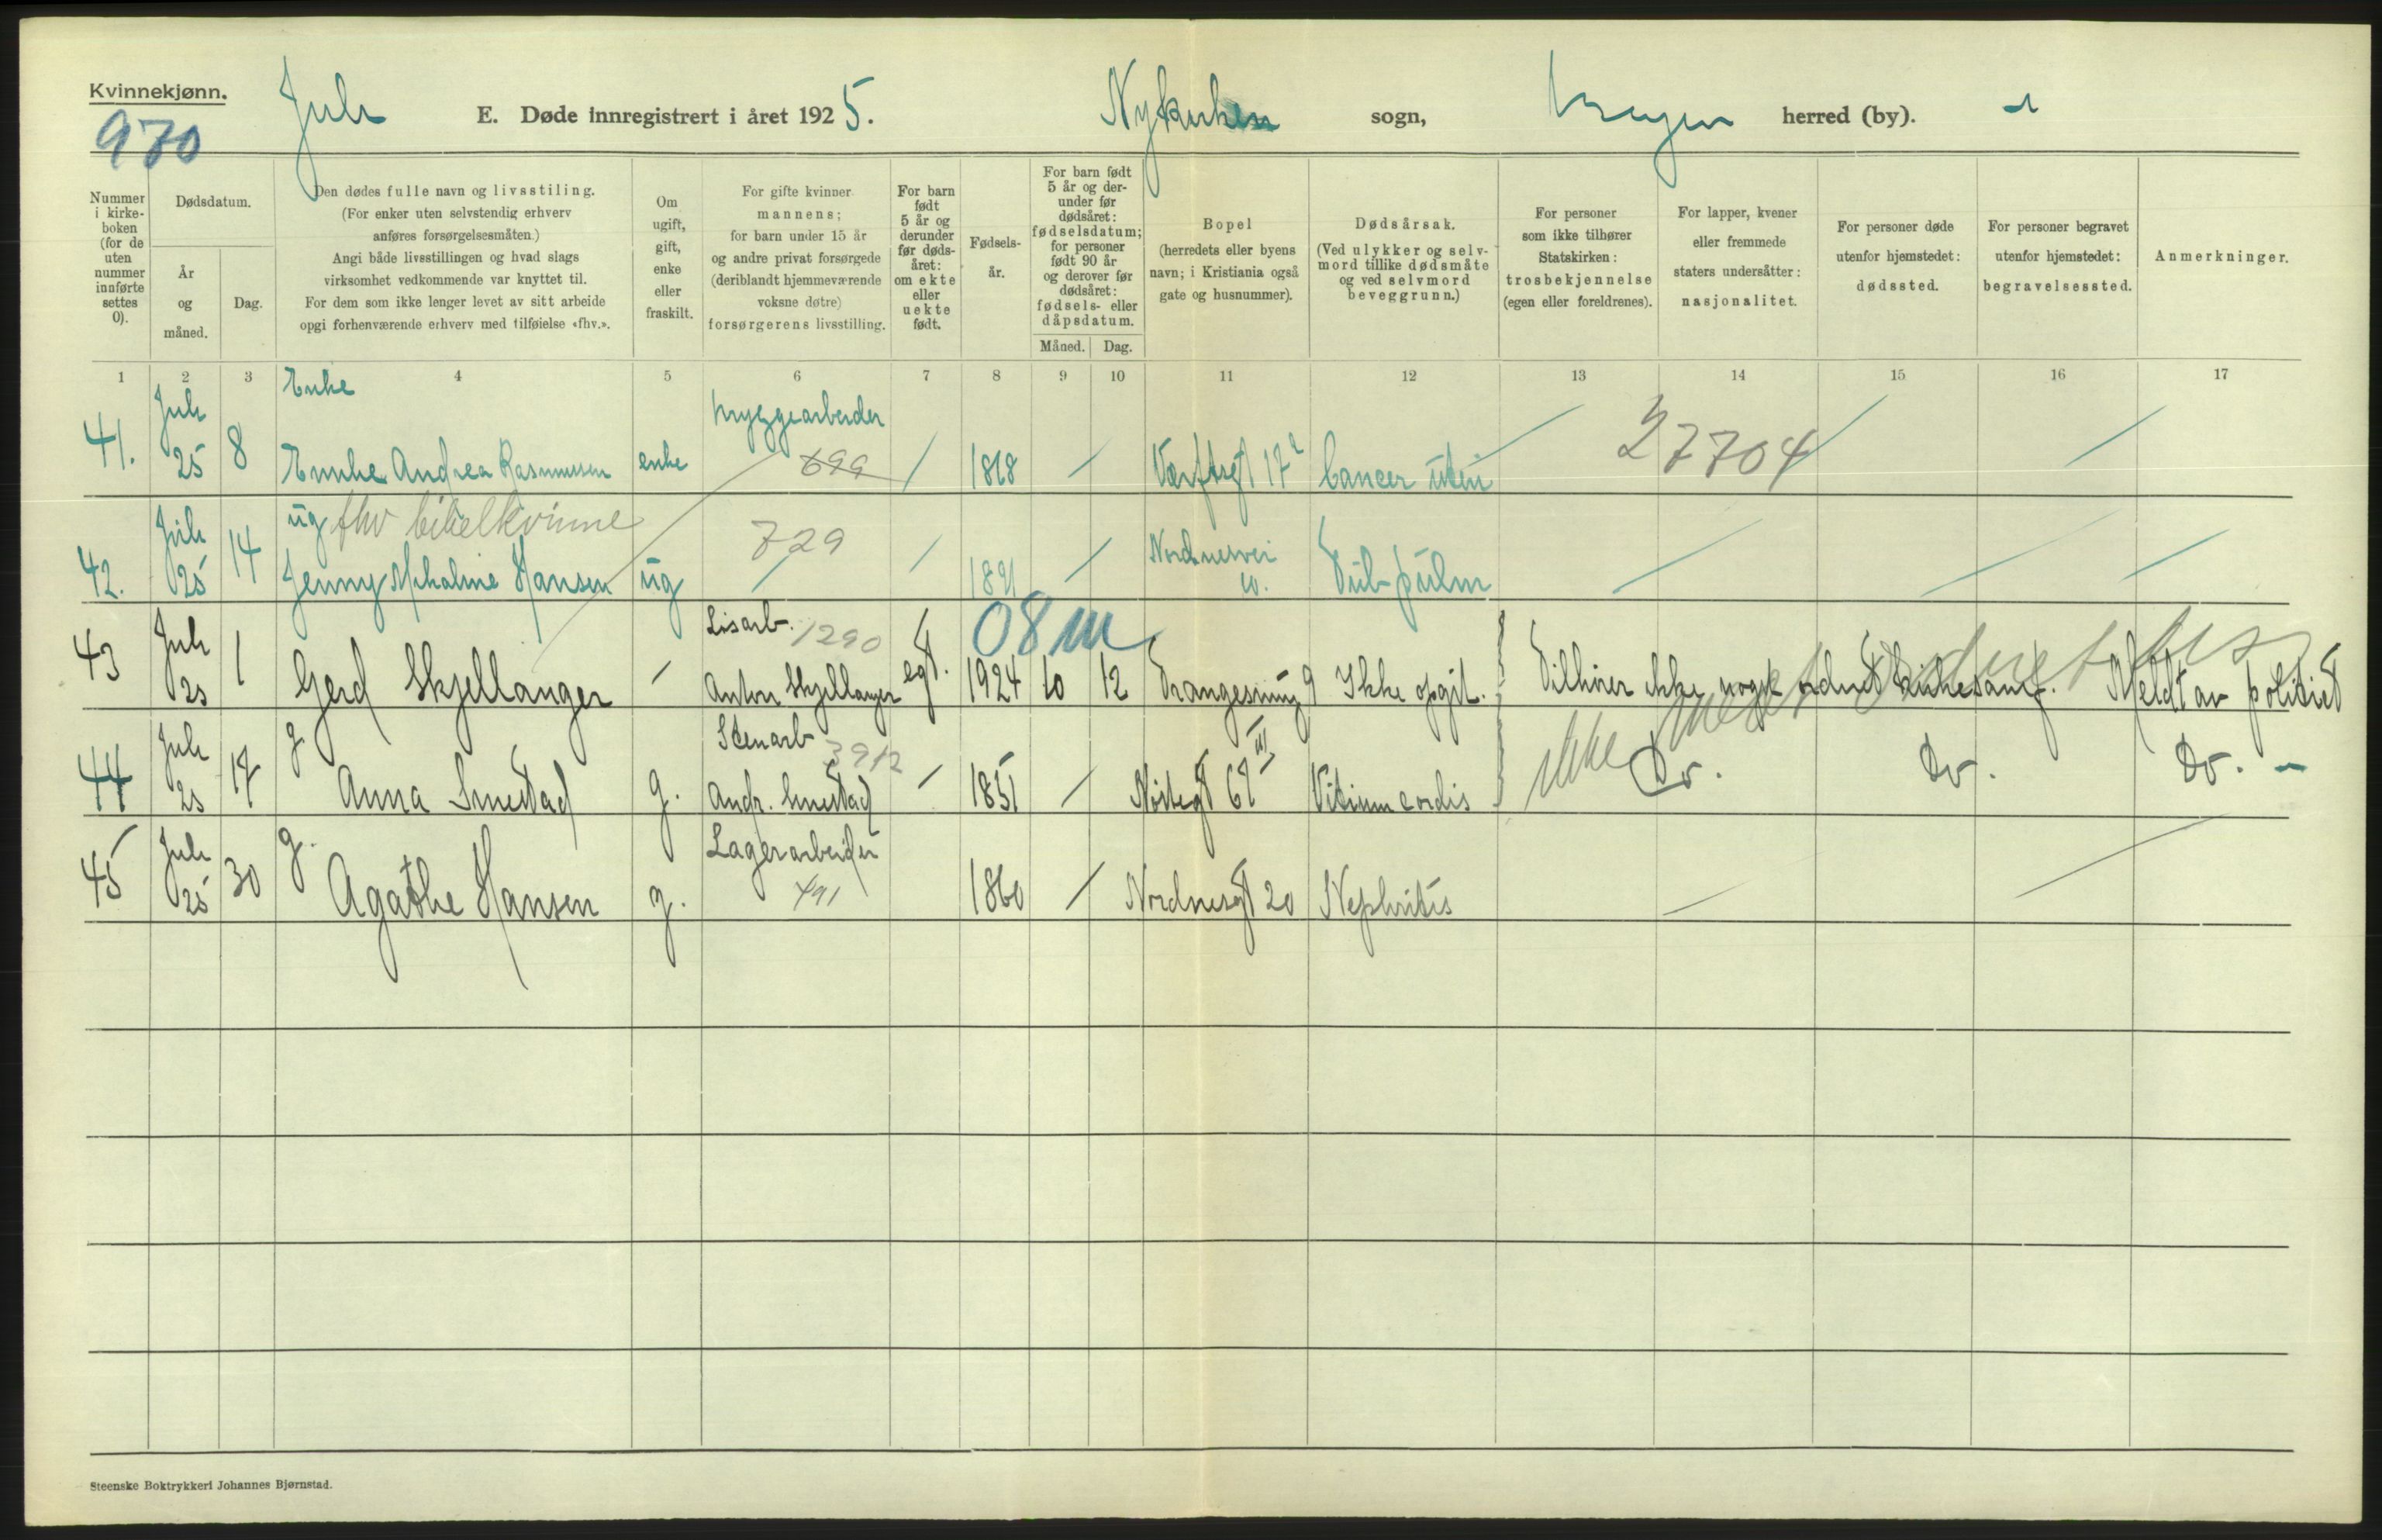 Kvinnekjønn.
Juli
E. Døde innregistrert i året 1925.
Nykirken sogn, Bergen herred (by).
970
Nummer i kirke-boken (for de uten nummer innførte settes 0).
Dødsdatum.
År og måned.
Dag.
Den dødes fulle navn og livsstiling.
(For enker uten selvstendig erhverv
anføres forsørgelsesmåten.)
Angi både livsstillingen og hvad slags
virksomhet vedkommende var knyttet til.
For dem som ikke lenger levet av sitt arbeide
opgi forhenværende erhverv med tilføielse «fhv.».
Om ugift, gift, enke eller fraskilt.
For gifte kvinner
mannens;
for barn under 15 år
og andre privat forsørgede
(deriblandt hjemmeværende
voksne døtre)
forsørgerens livsstilling.
For barn født 5 år og derunder før døds-året: om ekte eller uekte født.
Fødsels-år.
For barn født 5 år og der-under før dødsåret: fødselsdatum; for personer født 90 år og derover før dødsåret: fødsels- eller dåpsdatum.
Måned. Dag.
Bopel
(herredets eller byens
navn; i Kristiania også
gate og husnummer).
Dødsårsak.
(Ved ulykker og selv-
mord tillike dødsmåte
og ved selvmord
beveggrunn.)
For personer
som ikke tilhører
Statskirken:
trosbekjennelse
(egen eller foreldrenes).
For lapper, kvener
eller fremmede
staters undersåtter:
nasjonalitet.
For personer døde
utenfor hjemstedet:
dødssted.
For personer begravet
utenfor hjemstedet:
begravelsessted.
Anmerkninger.
1 2 3 4 5 6 7 8 9 10 11 12 13 14 15 16 17
Enke
Bryggearbeider
41. Juli 25 8 Emche Andrea Rasmussen enke 699 / 1868 / Værftsgt 17 Cancer uteri / 27704 / /
ug fhv bibelkvinne
729
42. Juli 25 14 Jenny Mikaline Hansen ug / / 1891 / Nordnesvei 10. Tub pulm / / /
Løsarb. 1290
08 m
43 Juli 25 1 Gerd Skjellanger / Anton Skjellanger egt. 1924 10 12 Trangesmug 9 Ikke opgit. Tilhører ikke noget ordnet kirkesamf. Meldt av politiet
ikke noget ordnet
g. Stenarb 3912
44 Juli 25 17 Anna Smestad g. Andr. Smestad / 1851 / Nøstegt 67 III Vitium cordis Do. Do. Do. -
g. Lagerarbeider
45 Juli 25 30 Agathe Hansen g. 491 1860 / Nordnesgt 20 Nephritis / /
Steenske Boktrykkeri Johannes Bjørnstad.